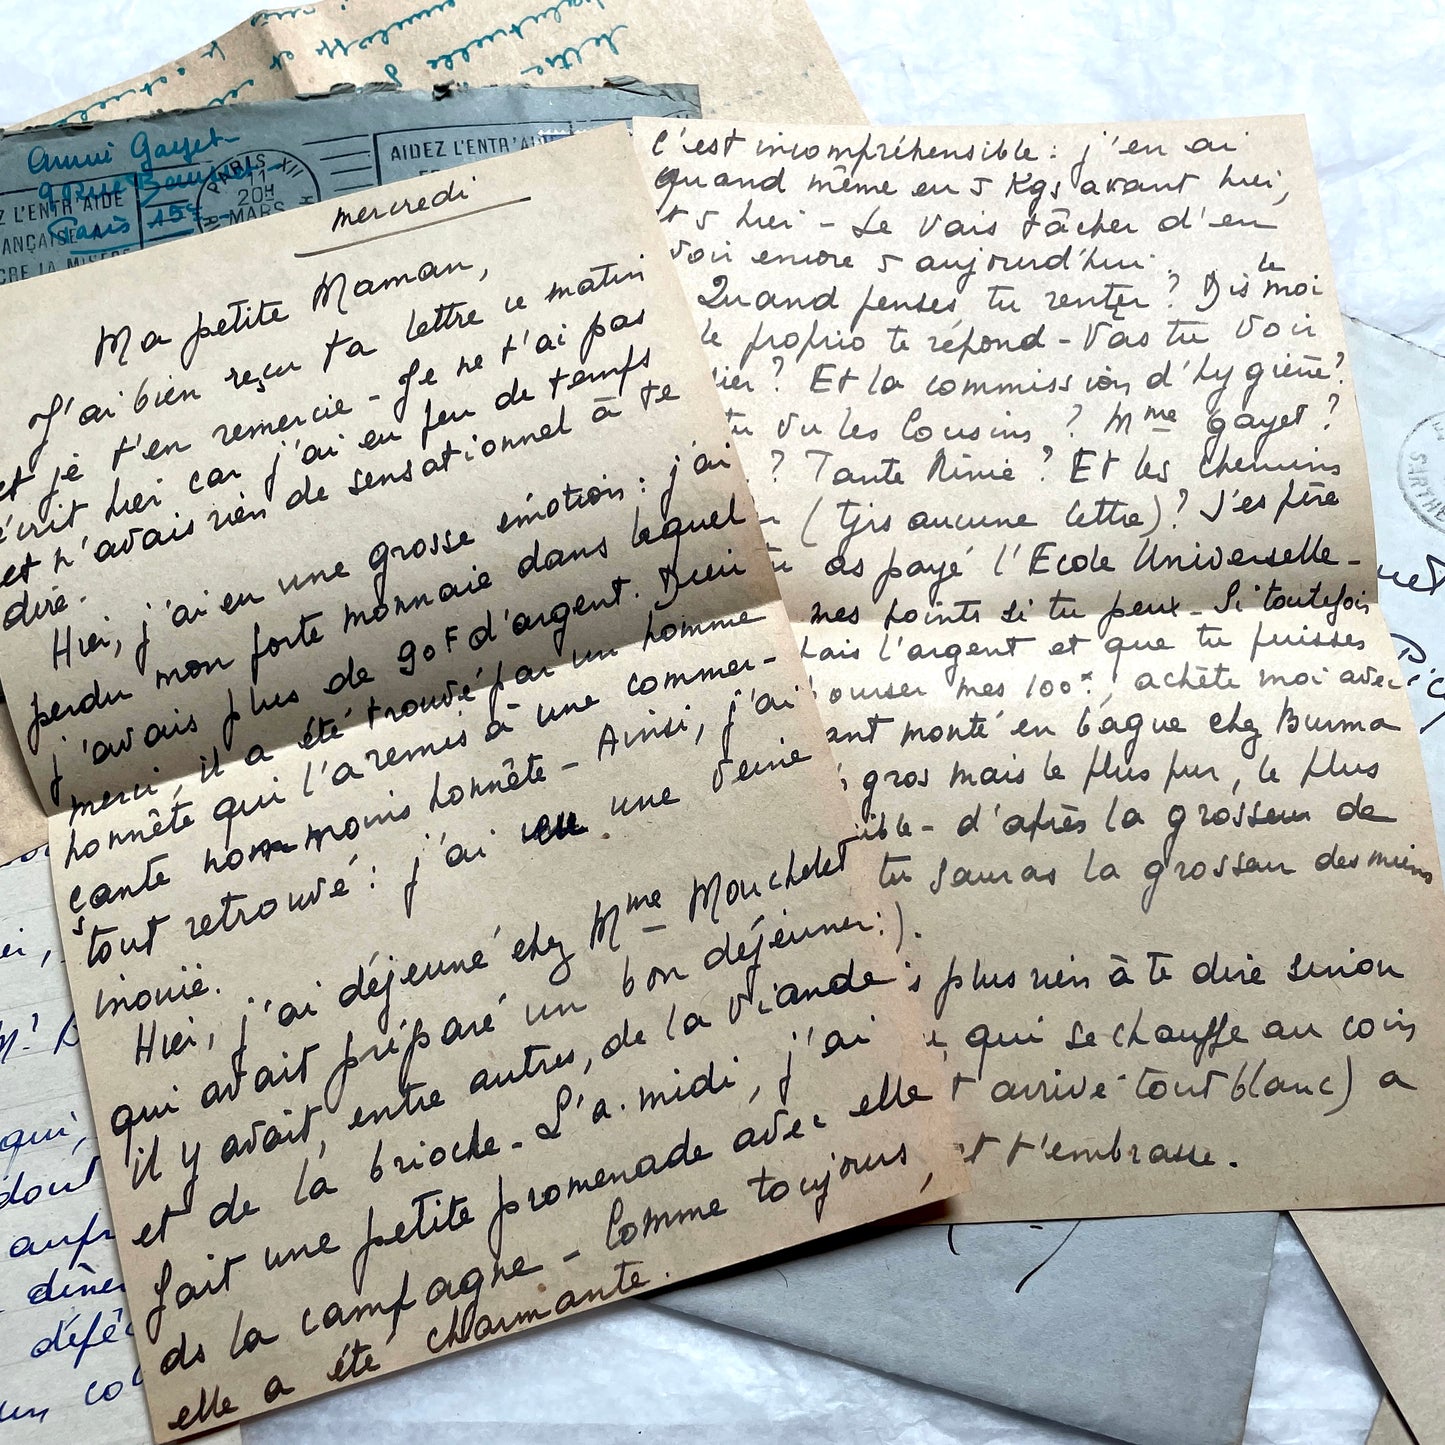 Annie Gayet
Paris 15e
AIDEZ L'ENTR'AIDE
Z L'ENTR'AIDE
ANÇAISE
CRE LA MISÈRE
PARIS XII
11
20H
MARS
mercredi
Ma petite Maman,
J'ai bien reçu ta lettre ce matin
et je t'en remercie - Je ne t'ai pas
écrit hier car j'ai eu peu de temps
et n'avais rien de sensationnel à te
dire.
Hier, j'ai eu une grosse émotion : j'ai
perdu mon porte monnaie dans lequel
j'avais plus de 90F d'argent. Dieu
merci, il a été trouvé par un homme
honnête qui l'a remis à une commer-
çante non moins honnête - Ainsi, j'ai
tout retrouvé : j'ai eu une veine
inouïe.
Hier, j'ai déjeuné chez Mme Mouchelet
qui avait préparé un bon déjeuner :
il y avait, entre autres, de la viande
et de la brioche - L'a. midi, j'ai
fait une petite promenade avec elle
ds la campagne - Comme toujours,
elle a été charmante.
c'est incompréhensible : j'en ai
quand même eu 5 Kgs avant hier,
t 5 hier - Je vais tâcher d'en
voir encore 5 aujourd'hui.
Quand penses tu rentrer ? Dis le moi
le proprio te répond - Vas tu voir
lier ? Et la commission d'hygiène ?
tu vu les Cousins ? Mme Gayet ?
? Tante Ninie ? Et les chemins
r (tjrs aucune lettre) ? J'espère
tu as payé l'Ecole Universelle -
mes points si tu peux - Si toutefois
tais l'argent et que tu puisses
ourser mes 100F, achète moi avec
ant monté en bague chez Burma
gros mais le plus pur, le plus
ible - d'après la grosseur de
tu sauras la grosseur des miens
).
s plus rien à te dire sinon
qui se chauffe au coin
t arrivé tout blanc) a
et t'embrasse.
ei,
qui,
dout
aufr
dîner
défé